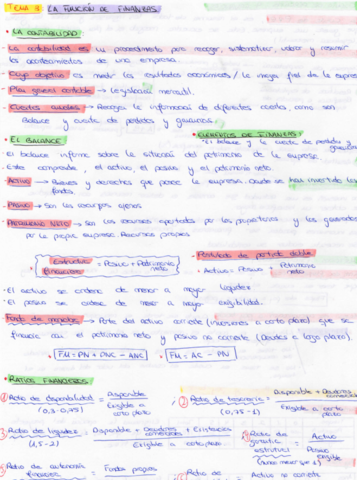 TEMA 11 LA FUNCIÓN DE FINANZAS
• LA CONTABILIDAD
- La contabilidad es un procedimiento para recoger, sistematizar, valorar y resumir
los acontecimientos de una empresa.
- Cuyo objetivo es medir los resultados económicos / la imagen fiel de la empresa
- Plan general contable → Legislación mercantil.
- Cuentas anuales → Recoge la información de diferentes cuentas, como son
Balance y cuenta de perdidas y ganancias.
• EL BALANCE
• ELEMENTOS DE FINANZAS:
"El balance y la cuenta de perdidas y ganancias
- El balance informa sobre la situación del patrimonio de la empresa.
- Este comprende, el activo, el pasivo y el patrimonio neto.
- ACTIVO → Bienes y derechos que posee la empresa. Donde se han invertido los
fondos.
- PASIVO → Son los recursos ajenos
- PATRIMONIO NETO → Son los recursos aportados por los propietarios y los generados
por la propia empresa. Recursos propios.
Estructura Financiera = Pasivo + Patrimonio neto
• Postulado de partida doble
- Activo = Pasivo + Patrimonio neto
- El activo se ordena de menor a mayor liquidez
- El pasivo se ordena de menor a mayor exigibilidad.
- Fondo de maniobra → Parte del activo corriente (inversiones a corto plazo) que se
financia con el patrimonio neto y pasivo no corriente (deudas a largo plazo).
FM = PN + PNC - ANC
FM = AC - PN
• RATIOS FINANCIEROS
1 Ratio de disponibilidad = Disponible / Exigible a corto plazo
(0,3-0,75)
2 Ratio de tesorería = Disponible + Deudores comerciales / Exigible a corto plazo
(0,75-1)
3 Ratio de liquidez = Disponible + Deudores comerciales + Existencias / Exigible a corto plazo
(1,5-2)
4 Ratio de garantía = Activo / Pasivo exigible
5 Ratio de autonomía financiera = Fondos propios
Ratio de
Activo no corriente